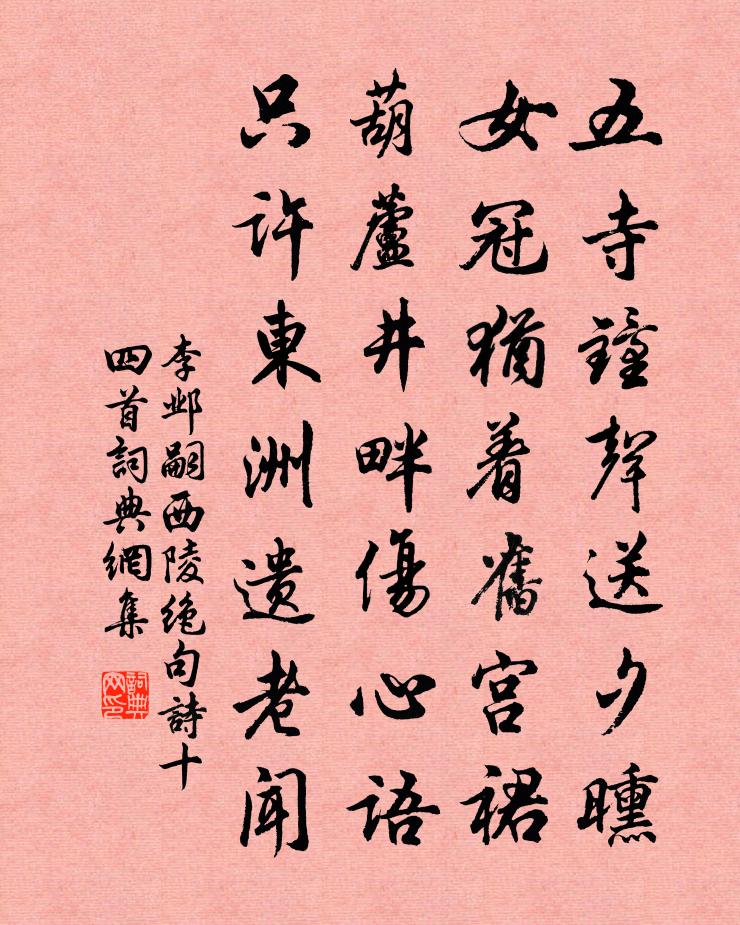 五寺鐘聲送夕曛
女冠猶着舊宮裙
葫蘆井畔傷心語
只許東洲遺老聞
李邺嗣西陵绝句詩十
四首詞典網集
詞典
网印